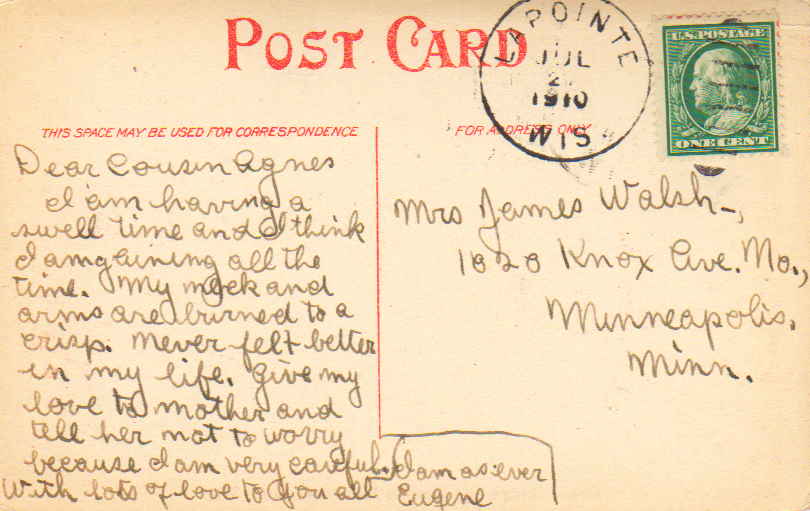 POST CARD
LAPOINTE
JUL
2
1910
WIS
U.S. POSTAGE
ONE CENT
THIS SPACE MAY BE USED FOR CORRESPONDENCE
FOR ADDRESS ONLY
Dear Cousin Agnes
I am having a
swell time and I think
I am gaining all the
time. My neck and
arms are burned to a
crisp. Never felt better
in my life. Give my
love to mother and
tell her not to worry
because I am very careful. I am as ever
With lots of love to you all Eugene
Mrs James Walsh,
1828 Knox Ave. No.,
Minneapolis,
Minn.